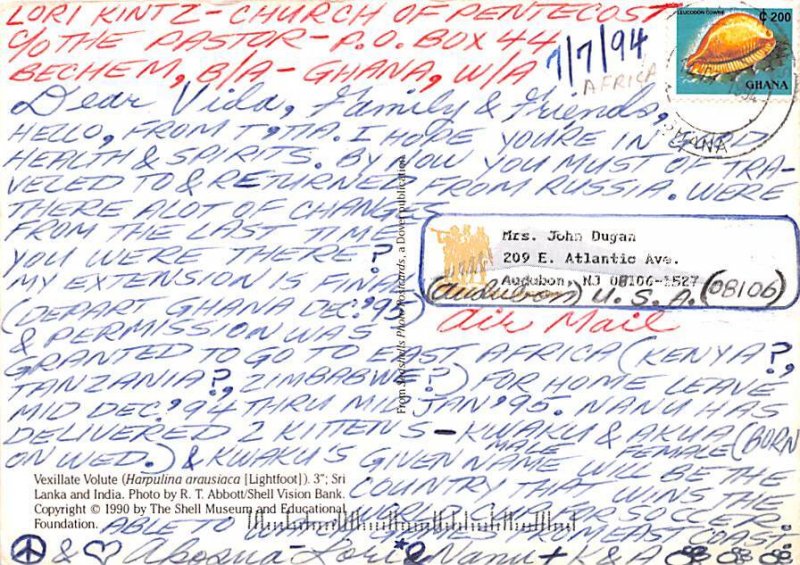 LORI KINTZ - CHURCH OF PENTECOST
C/O THE PASTOR - P.O. BOX 44
BECHEM, B/A - GHANA, W/A
7/7/94
AFRICA
LEUCODON COWRIE
₵ 200
GHANA
GHANA
Dear Vida, Family & Friends,
HELLO, FROM T,TIA. I HOPE YOURE IN GOOD
HEALTH & SPIRITS. BY NOW YOU MUST OF TRA-
VELED TO & RETURNED FROM RUSSIA. WERE
THERE ALOT OF CHANGES
FROM THE LAST TIME
YOU WERE THERE?
MY EXTENSION IS FINAL
(DEPART GHANA DEC. '95)
& PERMISSION WAS
GRANTED TO GO TO EAST AFRICA (KENYA?,
TANZANIA?, ZIMBABWE?) FOR HOME LEAVE
MID DEC. '94 THRU MID JAN '95. NANU HAS
DELIVERED 2 KITTENS - KWAKU & AKUA (BORN
MALE FEMALE
ON WED.) & KWAKU'S GIVEN NAME WILL BE THE
COUNTRY THAT WINS THE
WORLD CUP FOR SOCCER.
ABLE TO THE GAMES FROM EAST COAST.
& Akosua - Lori & Nanu + K & A
Mrs. John Dugan
209 E. Atlantic Ave.
Audubon, NJ 08106-1527
(audubon) U.S.A. (08106)
Air Mail
From Seashells Photo Postcards, a Dover publication
Vexillate Volute (Harpulina arausiaca [Lightfoot]). 3"; Sri
Lanka and India. Photo by R. T. Abbott/Shell Vision Bank.
Copyright © 1990 by The Shell Museum and Educational
Foundation.